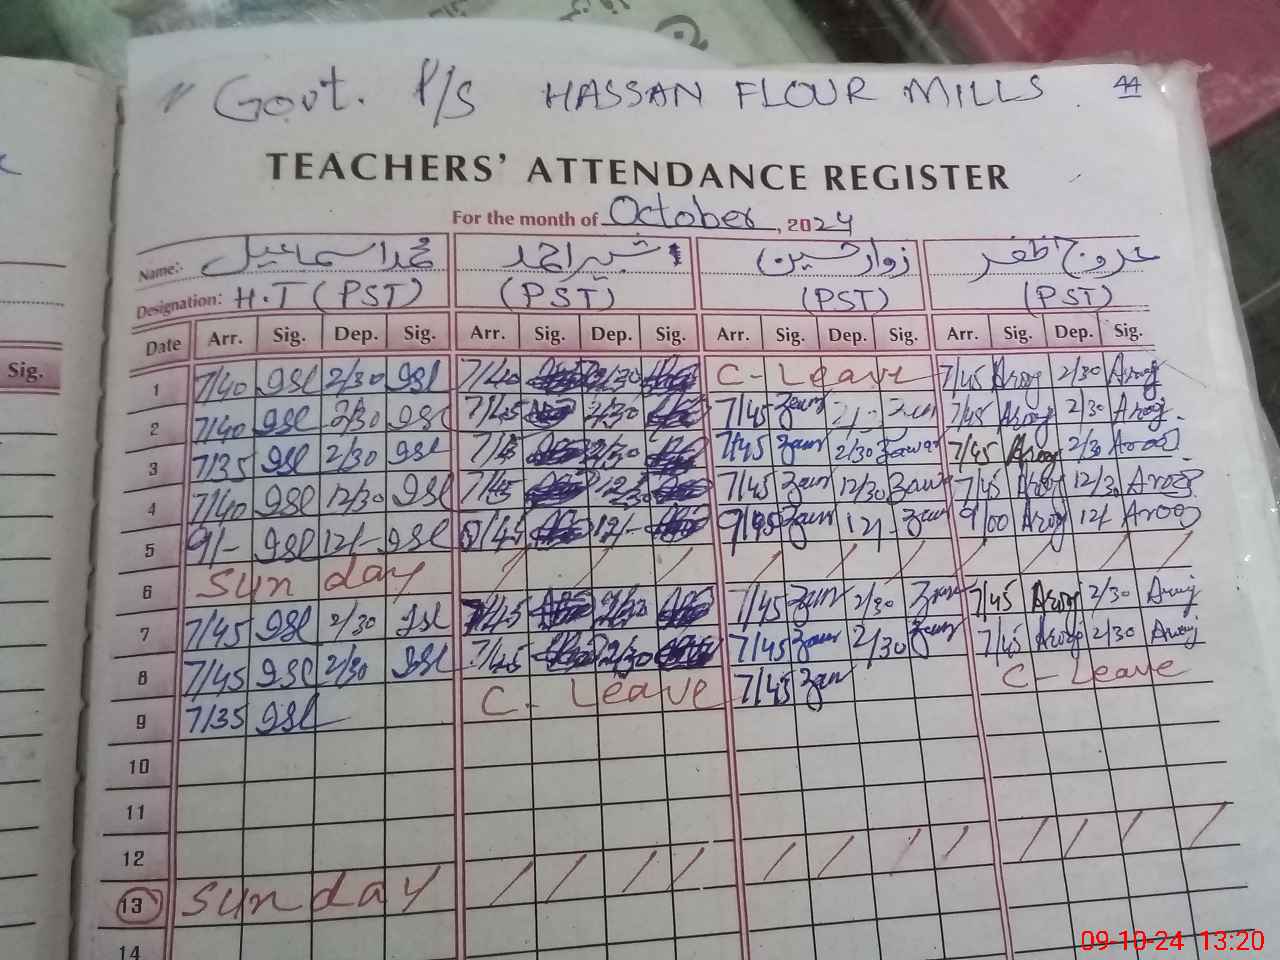 Govt. P/S HASSAN FLOUR MILLS 44
TEACHERS' ATTENDANCE REGISTER
For the month of October, 2024
Name:- محمد اسماعیل شبیر احمد زوار حسین عروج ظفر
Designation: H.T (PST) (PST) (PST) (PST)
Date Arr. Sig. Dep. Sig. Arr. Sig. Dep. Sig. Arr. Sig. Dep. Sig. Arr. Sig. Dep. Sig.
Sig.
1 7/40 ISl 2/30 ISl 7/40 2/30 C - Leave 7/45 Arooj 2/30 Arooj
2 7/40 ISl 2/30 ISl 7/45 2/30 7/45 Zaw 2/- Zaw 7/45 Arooj 2/30 Arooj
3 7/35 ISl 2/30 ISl 7/45 2/30 7/45 Zaw 2/30 Zawar 7/45 Arooj 2/30 Arooj
4 7/40 ISl 12/30 ISl 7/45 12/30 7/45 Zaw 12/30 Zaw 7/45 Arooj 12/30 Arooj
5 9/- ISl 12/- ISl 12/- Zaw 12/- Zaw 9/00 Arooj 12/- Arooj
6 Sunday / / / / / / / / / / /
7 7/45 ISl 2/30 ISl 7/45 7/45 Zaw 2/30 Zaw 7/45 Arooj 2/30 Arooj
8 7/45 ISl 2/30 ISl 7/45 2/30 7/45 Zaw 2/30 Zaw 7/45 Arooj 2/30 Arooj
9 7/35 ISl C - Leave 7/45 Zaw C - Leave
10
11
12
13 Sunday / / / / / / / / / / / /
14
09-10-24 13:20